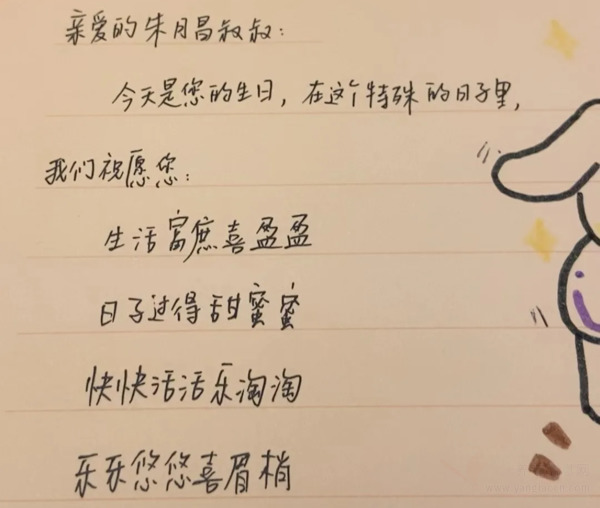 亲爱的朱月昌叔叔:
今天是您的生日,在这个特殊的日子里,
我们祝愿您:
生活富庶喜盈盈
日子过得甜蜜蜜
快快活活乐淘淘
乐乐悠悠喜眉梢